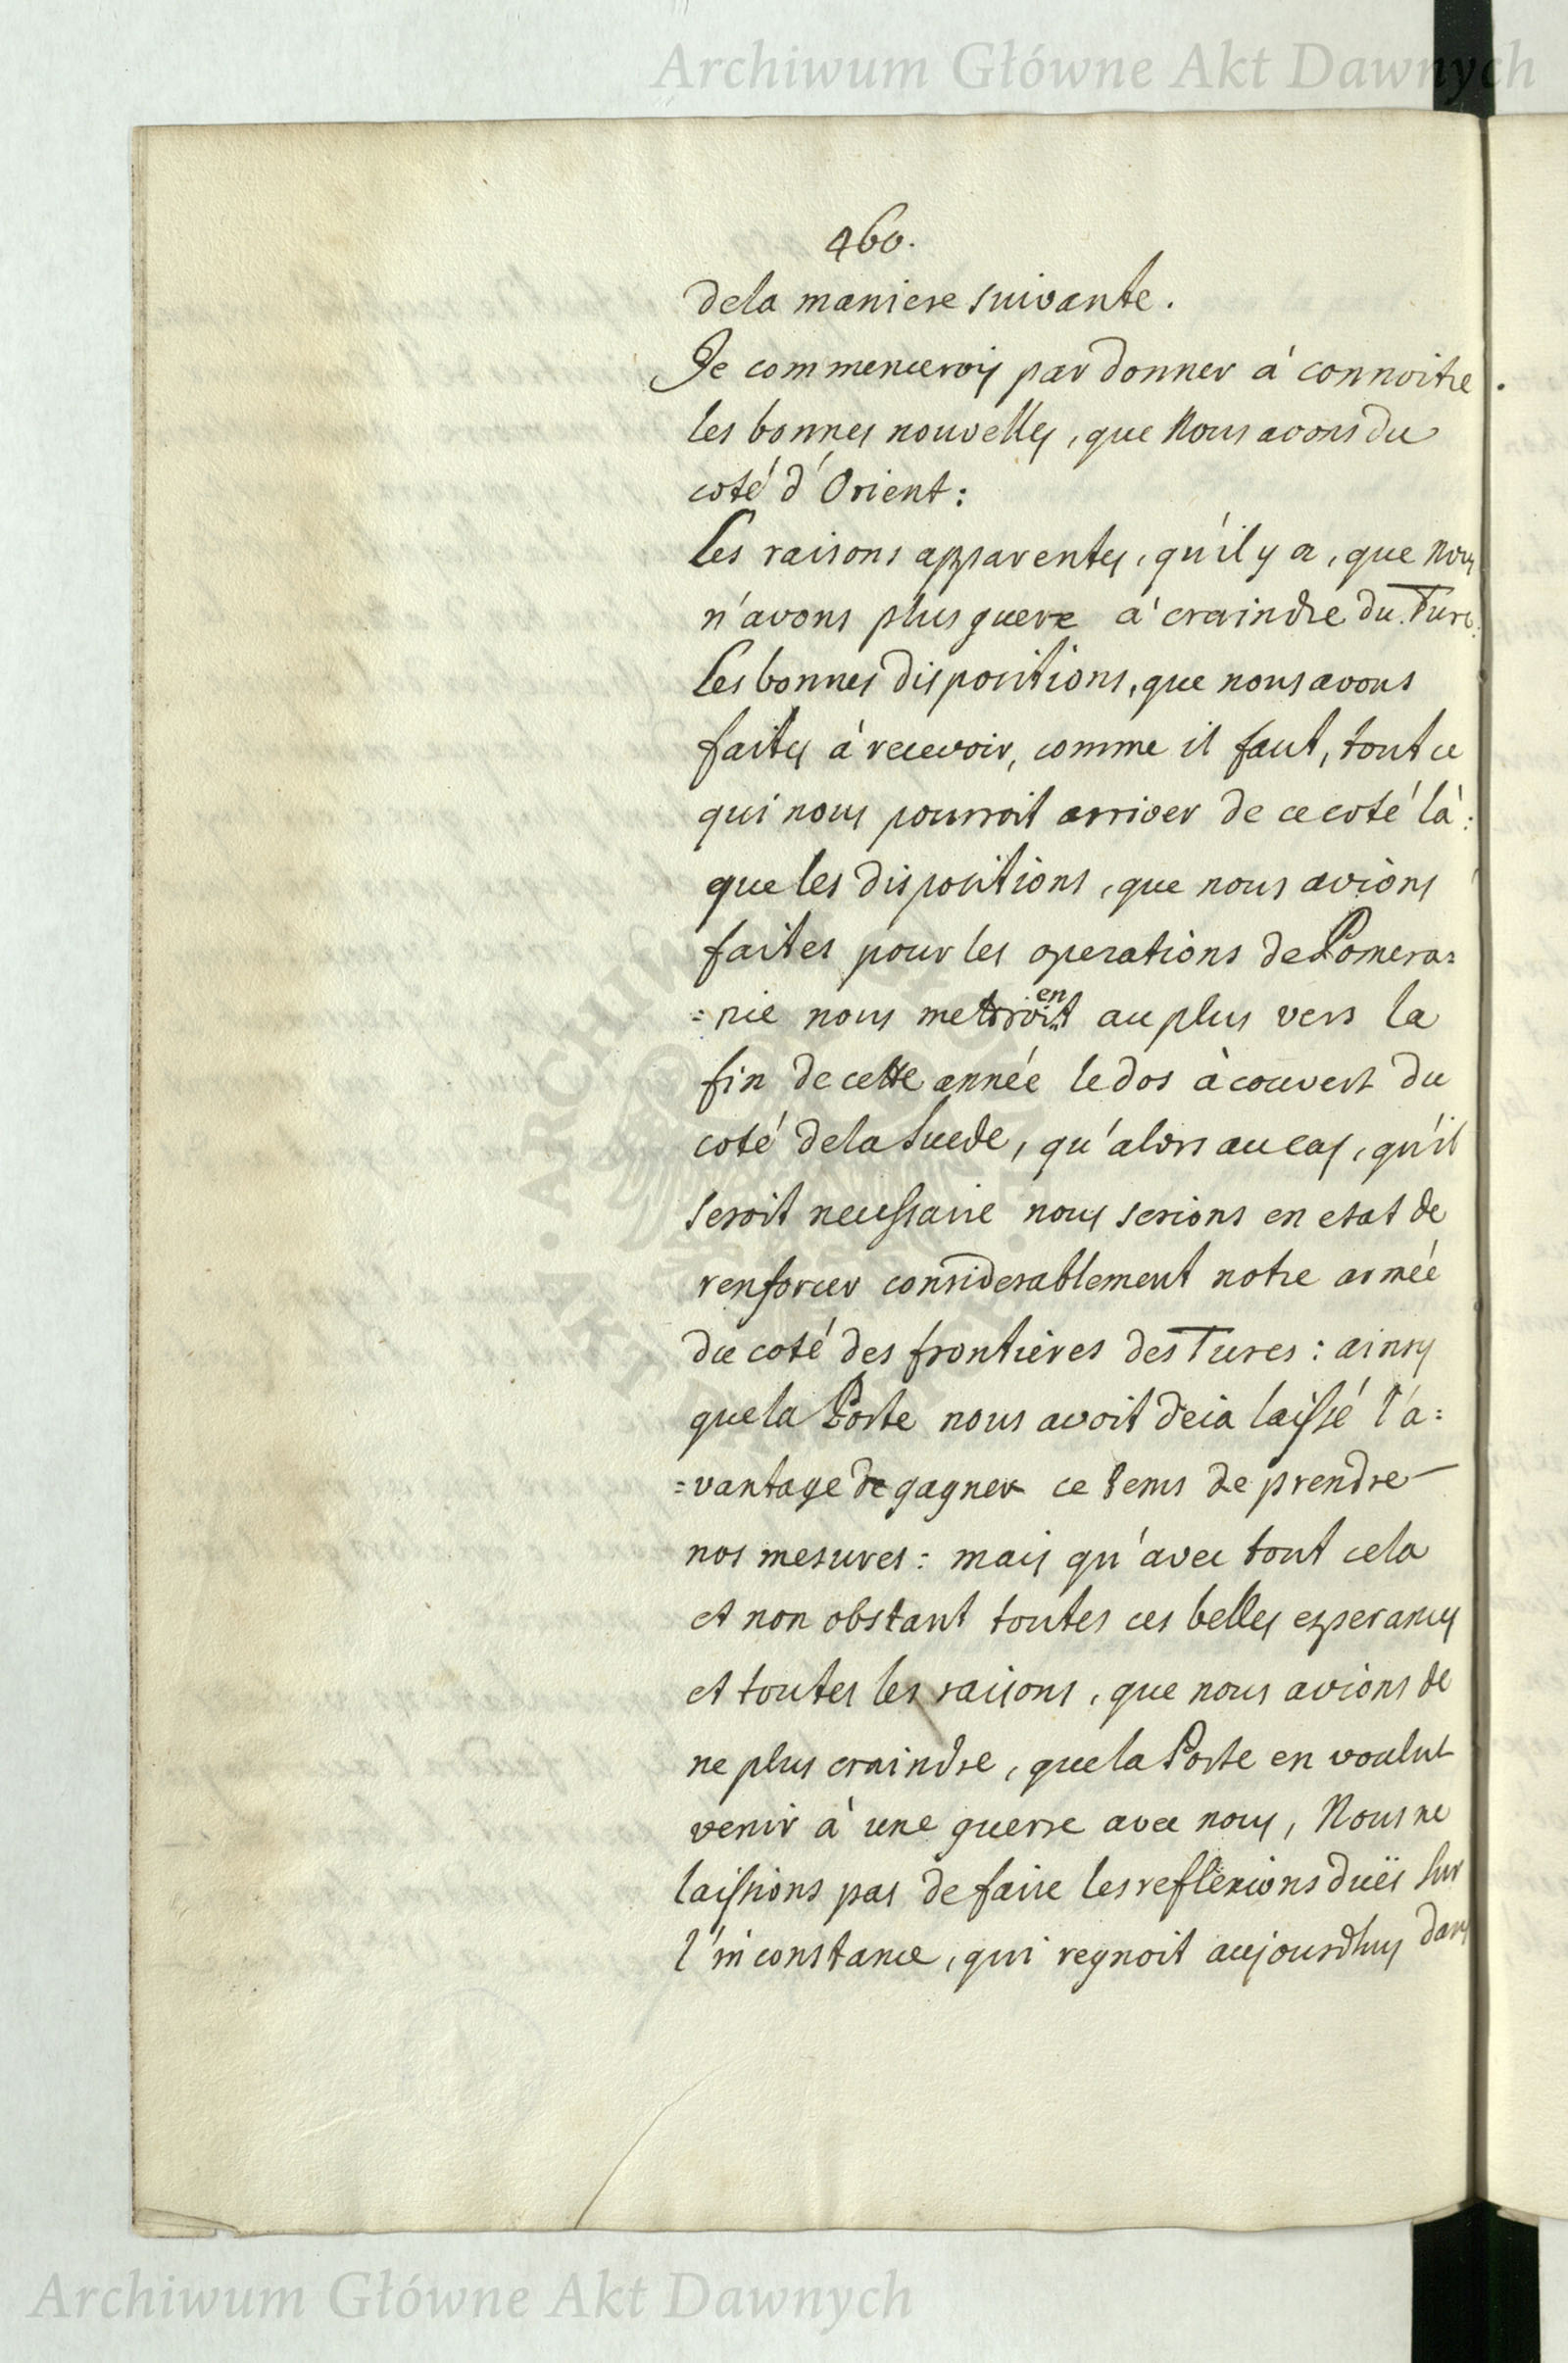 Archiwum Główne Akt Dawnych
460.
dela maniere suivante.
Je commencerois par donner á connoitre
les bonnes nouvelles, que Nous avons du
coté d'Orient:
Les raisons apparentes, qu'il y a, que Nous
n'avons plus guere á craindre du Turc.
Les bonnes dispositions, que nous avons
faites á recevoir, comme il faut, tout ce
qui nous pourroit arriver de ce coté là:
que les dispositions, que nous avions
faites pour les operations de Pomera=
=nie nous mettroient au plus vers la
fin de cette année le dos à couvert du
coté dela Suede, qu'alors au cas, qu'il
seroit necessaire nous serions en etat de
renforcer considerablement notre armée
du coté des frontieres des Turcs: ainsy
que la Porte nous avoit deia laissé l'a=
=vantage de gagner ce tems de prendre
nos mesures: mais qu'avec tout cela
et non obstant toutes ces belles esperances
et toutes les raisons, que nous avions de
ne plus craindre, que la Porte en voulut
venir à une guerre avec nous, Nous ne
laissions pas de faire les reflexions duës sur
l'inconstance, qui regnoit aujourdhuy dans
ARCHIWUM GŁÓWNE AKT DAWNYCH
Archiwum Główne Akt Dawnych